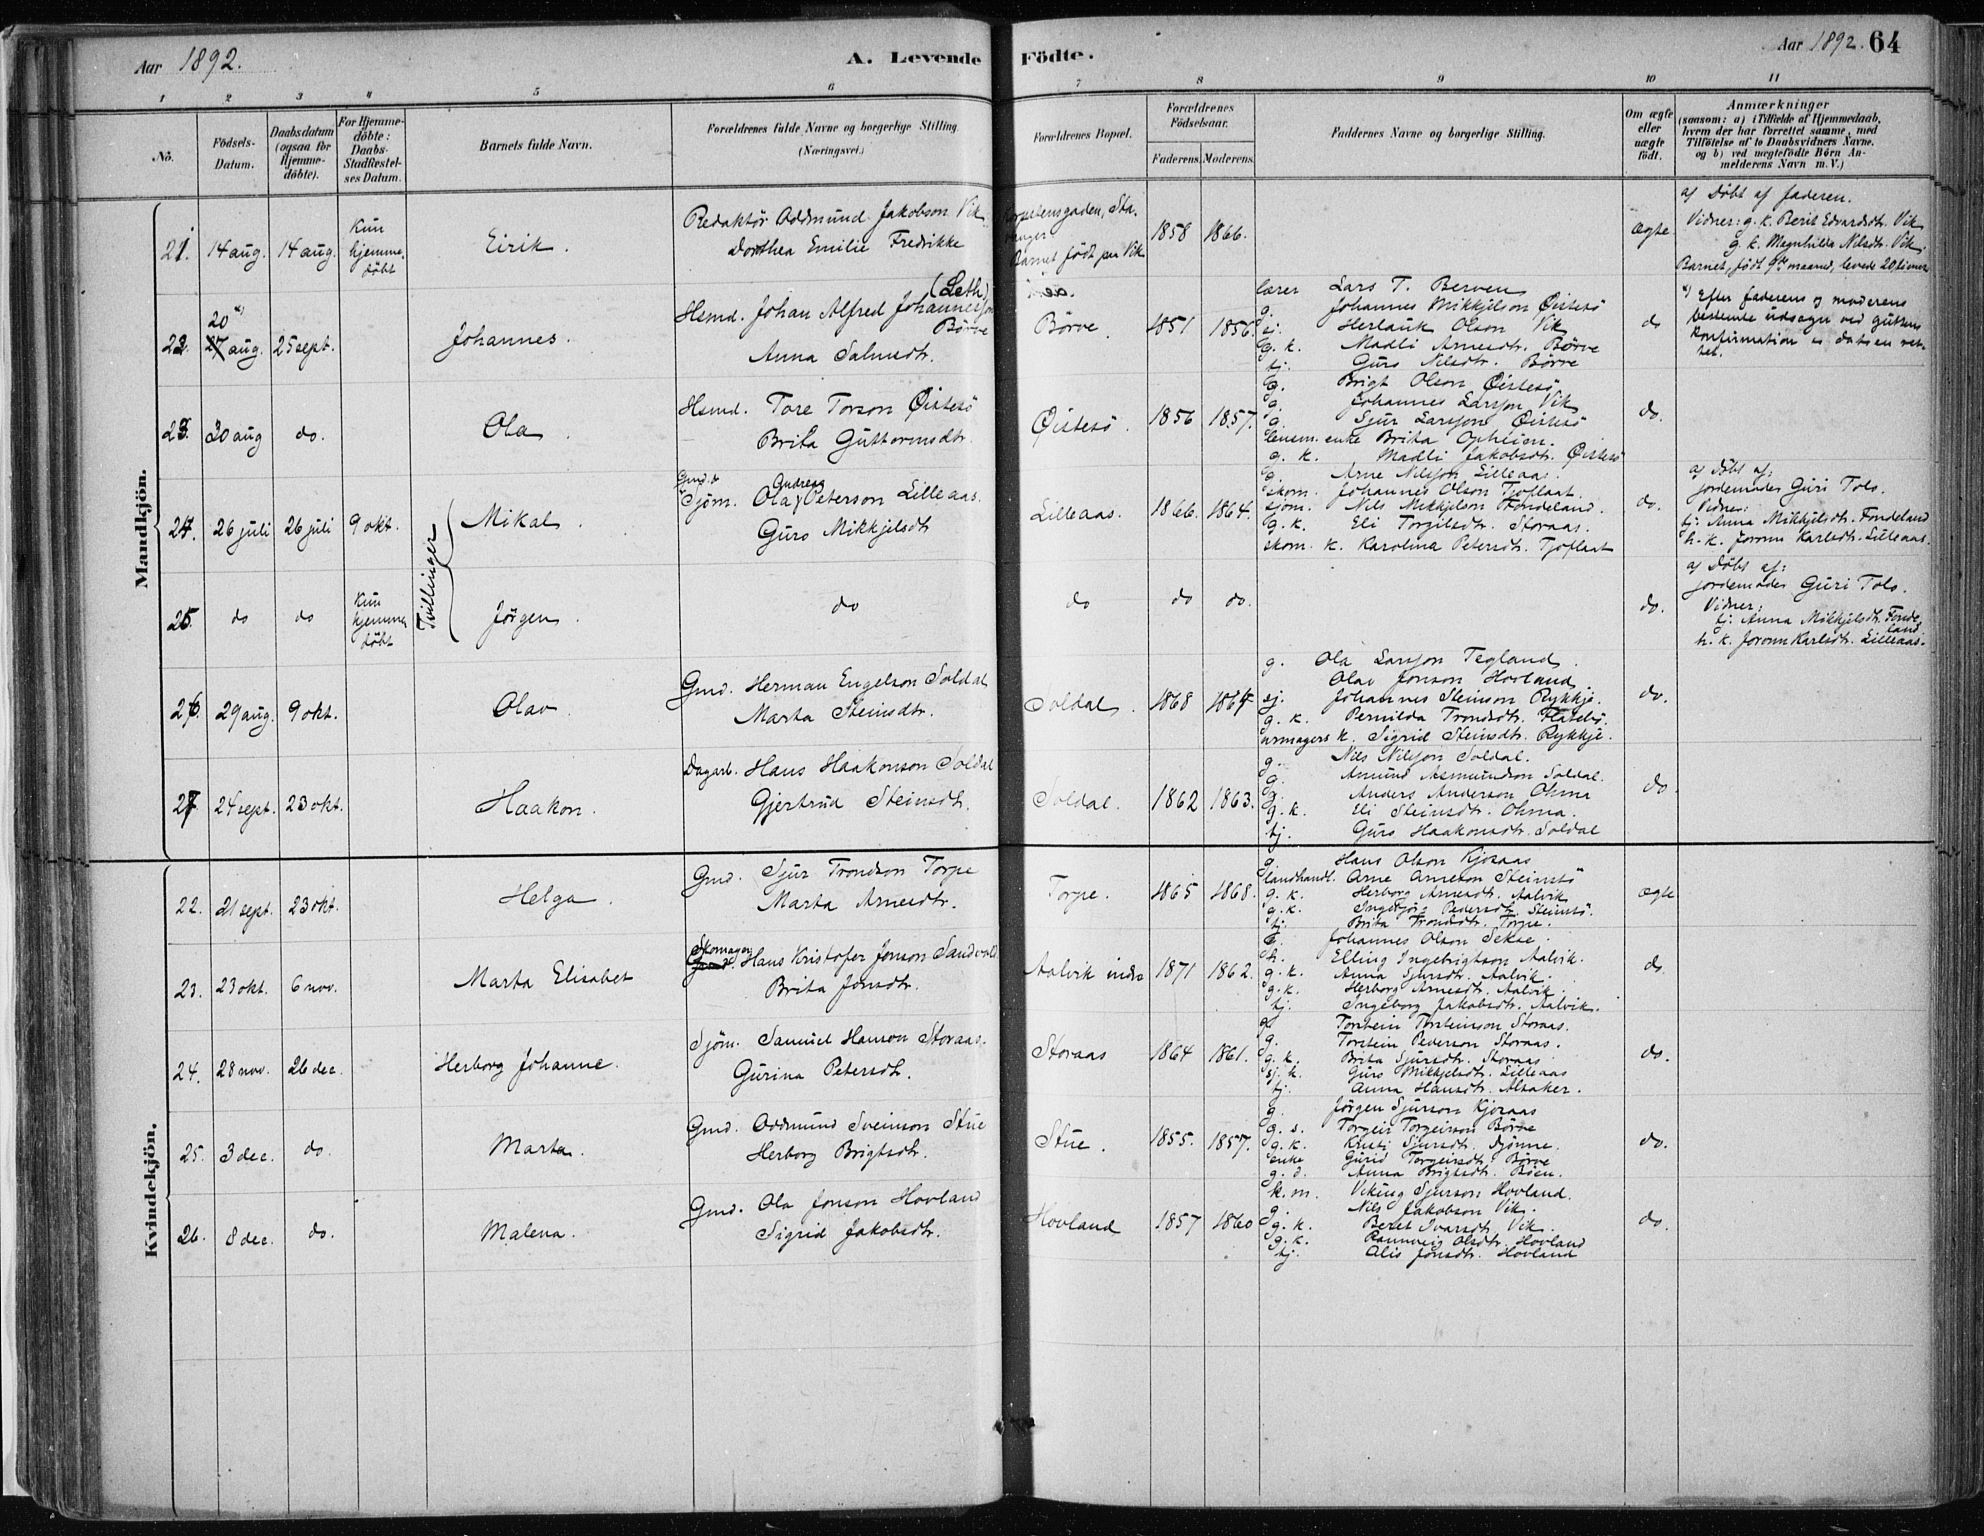 Aar 1892.
A. Levende Födte.
Aar 1892. 64
1 2 3 4 5 6 7 8 9 10 11
No.
Födsels-Datum.
Daabsdatum (ogsaa for Hjemme-döbte).
For Hjemme-döbte: Daabs-Stadfæstelses Datum.
Barnets fulde Navn.
Forældrenes fulde Navne og borgerlige Stilling. (Næringsvei.)
Forældrenes Bopæl.
Forældrenes Födselsaar.
Faderens. Moderens.
Faddernes Navne og borgerlige Stilling.
Om ægte eller uægte födt.
Anmærkninger
(saasom: a) i Tilfælde af Hjemmedaab,
hvem der har forrettet samme, med
Tilföielse af to Daabsvidners Navne.
og b) ved uægtefödte Börn An-
melderens Navn m. V.)
Mandkjön.
21. 14 aug. 14 aug. Kun hjemme-döbt
Eirik.
Redaktör Oddmund Jakobson Vik
Dorthea Emilie Fredrikke
Barnet födt paa Vik
1858 1866.
ægte
a) Döbt af faderen.
Vidner: g. k. Berit Edvardsdt. Vik
g. k. Magnhilda Nilsdt. Vik.
Barnet, födt 9de maaned, levede 20 timer
22. 20 *) 27 aug. 25 sept.
Johannes.
(Leth)
Hsmd. Johan Alfred Johannesson
Börve
Anna Salmsdtr.
Börve 1851 1856.
lærer Lars T. Berven
g. Johannes Mikkjelson Öistesö
sj. Herlauk Olson Vik
g. k. Madli Arnesdtr. Börve
tj. Guro Nilsdtr. Börve
do
*) Efter faderens og moderens
bestemte udsagn ved guttens
konfirmation er datoen rettet.
23. 30 aug do.
Ola.
Hsmd. Tore Torson Öistesö
Brita Guttormsdtr.
Öistesö. 1856 1857.
g. Brigt Olson Öistesö
g. Johannes Larsson Vik
g. Sjur Larsson Öistesö
lensm. enke Brita Opheim.
g. k. Madli Jakobsdtr. Öistesö
do.
24. 26 juli 26 juli 9 okt.
Tvillinger
Mikal.
Gmd.
Sjöm. Ola Andreas Peterson Lilleaas.
Guro Mikkjelsdt
Lilleaas. 1866. 1864.
g. Arne Nilsson Lilleaas.
skom. Johannes Olson Tjoflaat.
sjöm. Nils Mikkjelson Fondeland.
g. k. Eli Torgilsdtr. Storaas.
skom. k. Karolina Petersdtr. Tjoflaat
do.
a) Döbt af:
jordemoder Guri Tolo.
Vidner:
tj. Anna Mikkjelsdt. Fondeland
h. k. Joronn Karlsdt. Lilleaas.
25. do do Kun hjemme döbt
Jörgen.
do
do do do.
do.
a) Döbt af:
jordemoder Guri Tolo.
Vidner:
tj. Anna Mikkjelsdt. Fondeland
h. k. Joronn Karlsdt. Lilleaas.
26. 29 aug. 9 okt.
Olav.
Gmd. Herman Engelson Soldal
Marta Steinsdtr.
Soldal. 1868 1864
g. Ola Larsson Tegland.
Olav Jonson Hovland
sj. Johannes Steinson Rykkje.
g. k. Pernilda Trondsdtr. Flatebö.
urmagers k. Sigrid Steinsdtr. Rykkje.
do.
27. 24 sept. 23 okt.
Haakon.
Dagarb. Hans Haakonson Soldal
Gjertrud Steinsdt.
Soldal. 1862 1863.
g. Nils Nilsson Soldal.
g. Amund Asmundson Soldal.
g. Anders Anderson Ohma
g. k. Eli Steinsdt. Ohma.
tj. Guro Haakonsdtr. Soldal
do.
Kvindekjön.
22. 21 sept. 23 okt.
Helga.
Gmd. Sjur Trondson Torpe
Marta Arnesdtr.
Torpe. 1865 1868.
g. Hans Olson Kjosaas
landhandl. Arne Arneson Steinstö
g. k. Herborg Arnesdt. Aalvik
g. k. Ingebjörg Pedersdt. Steinstö.
tj. Brita Trondsdtr. Torpe.
ægte
23. 23 okt. 6 nov.
Marta Elisabet
Skomager
Hans Kristofer Jonson Sandvold.
Brita Jonsdtr.
Aalvik indre 1871 1862.
Johannes Olson Sekse.
Elling Ingebrigtson Aalvik.
g. k. Anna Sjursdt. Aalvik.
g. k. Herborg Arnesdt. Aalvik.
tj. Ingeborg Jakobsdtr. Aalvik.
do.
24. 28 nov. 26 dec.
Herborg Johanne.
Sjöm. Samuel Hanson Storaas.
Gurina Petersdt.
Storaas 1864 1861.
g. Torstein Torsteinson Storaas.
g. Torstein Pederson Storaas.
g. k. Brita Sjursdtr. Storaas
sj. k. Guro Mikkjelsdt. Lilleaas
tj. Anna Hansdtr. Alsaker.
do.
25. 3 dec. do.
Marta.
Gmd. Oddmund Sveinson Stue
Herborg Brigtsdtr.
Stue. 1855. 1857.
g. Jörgen Sjurson Kjosaas
g. s. Torgeir Torgeirson Börve
g. k. Kristi Sjursdt. Djönne.
enke Gurid Torgeirsdt. Börve
g. d. Anna Brigtsdt. Böen.
do.
26. 8 dec. do.
Malena.
Gmd. Ola Jonson Hovland
Sigrid Jakobsdtr.
Hovland 1857 1860
k. m. Viking Sjurson Hovland.
g. Nils Jakobson Vik.
g. k. Beret Ivarsdt. Vik.
g. k. Rannveig Olsdtr. Hovland
tj. Alis Jonsdtr. Hovland
do.